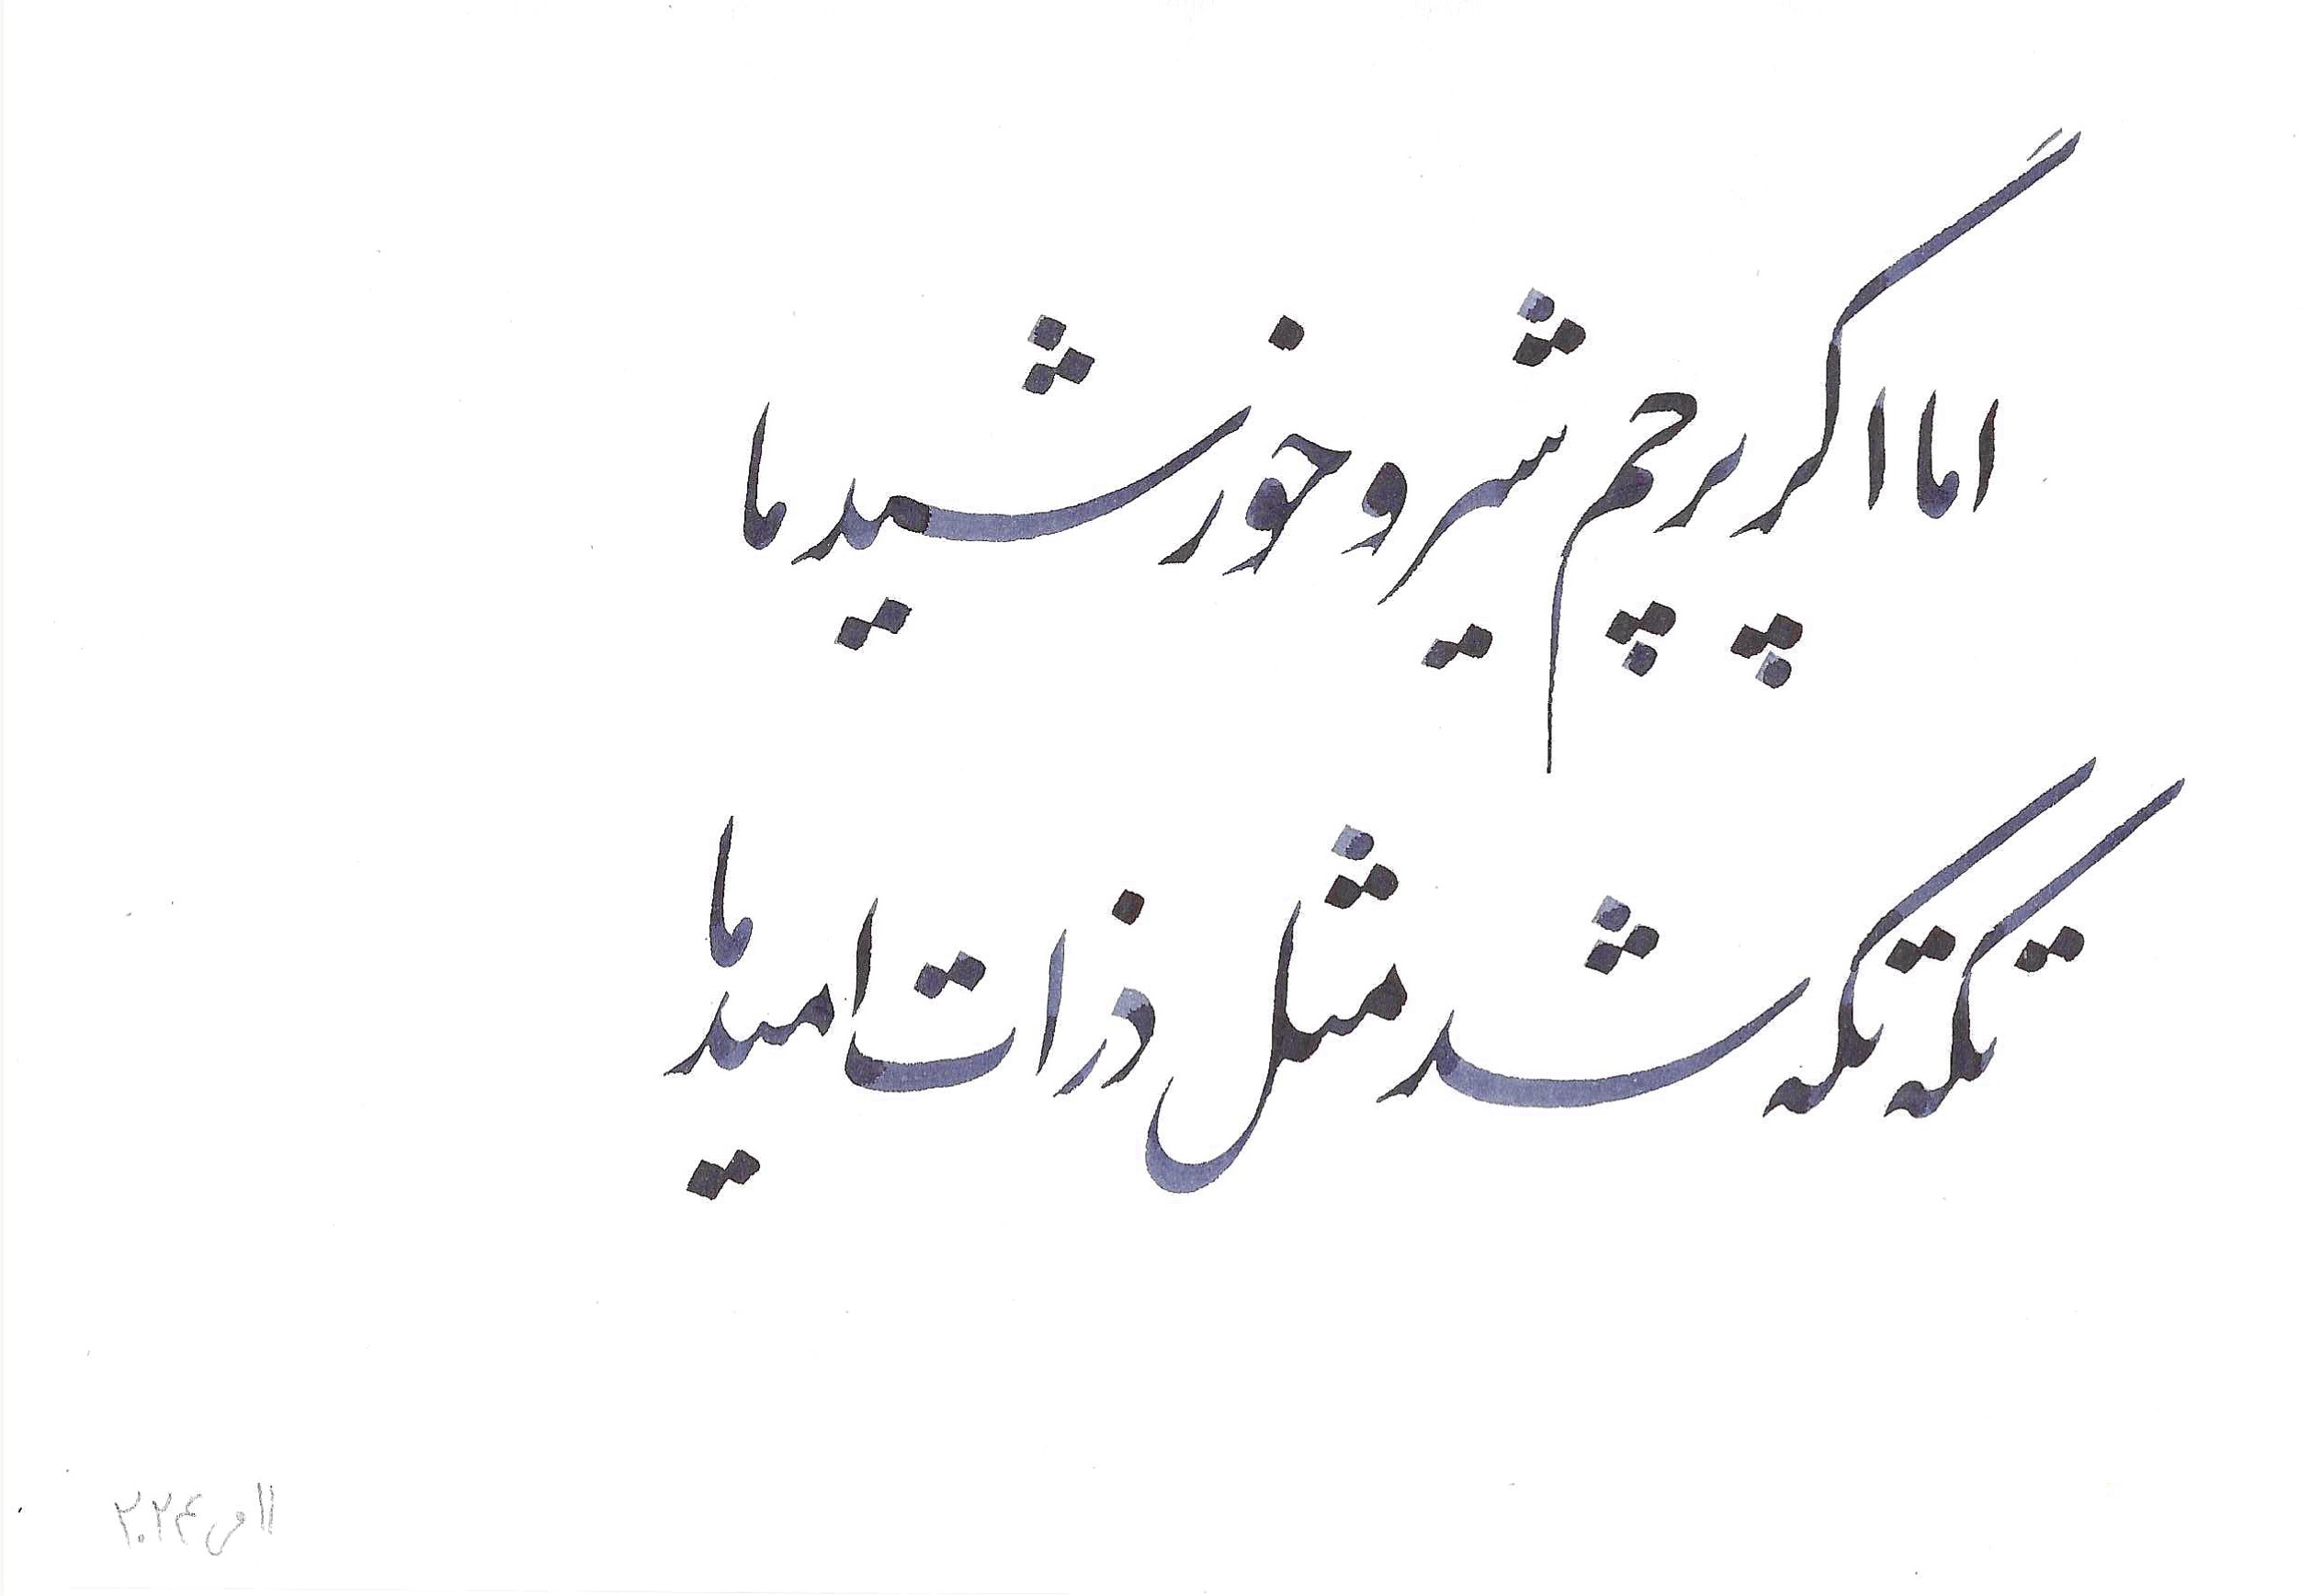 اما اگر پرچم شیر و خورشید ما
تکه تکه شد مثل ذرات امید ما
۱۱ می ۲۰۲۴